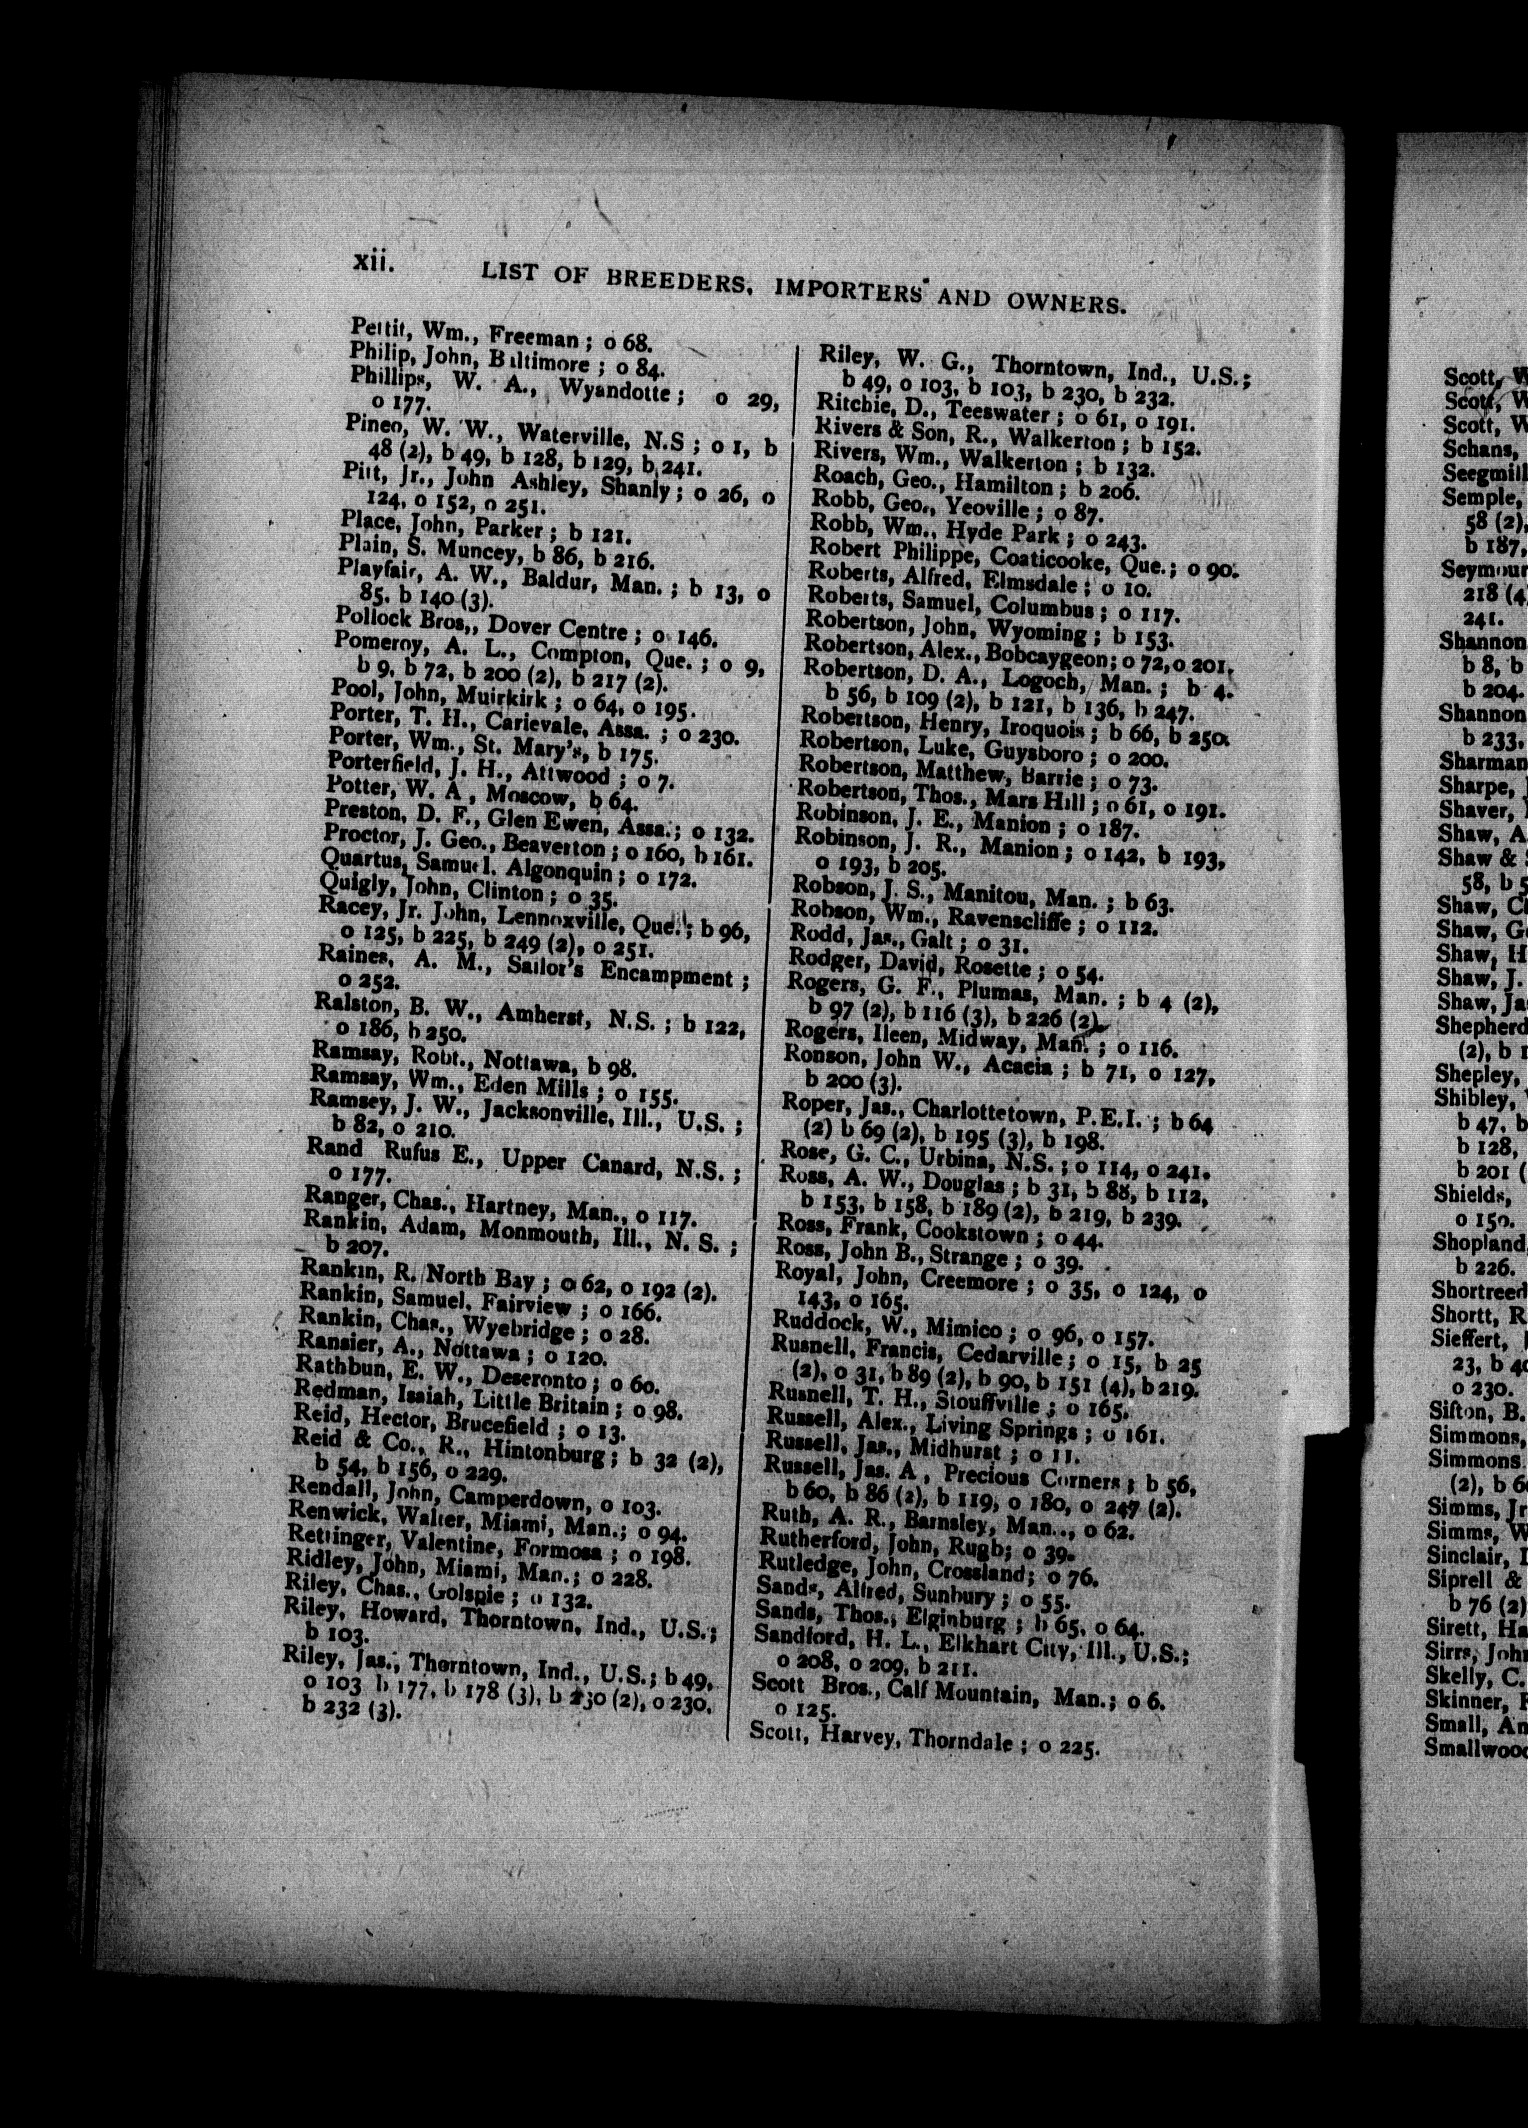 xii. LIST OF BREEDERS, IMPORTERS AND OWNERS.
Pettit, Wm., Freeman ; o 68.
Philip, John, Baltimore ; o 84.
Phillips, W. A., Wyandotte ; o 29,
o 177.
Pineo, W. W., Waterville, N.S ; o 1, b
48 (2), b 49, b 128, b 129, b 241.
Pitt, Jr., John Ashley, Shanly ; o 26, o
124, o 152, o 251.
Place, John, Parker ; b 121.
Plain, S. Muncey, b 86, b 216.
Playfair, A. W., Baldur, Man. ; b 13, o
85. b 140 (3).
Pollock Bros,, Dover Centre ; o 146.
Pomeroy, A. L., Compton, Que. ; o 9,
b 9, b 72, b 200 (2), b 217 (2).
Pool, John, Muirkirk ; o 64, o 195.
Porter, T. H., Carievale, Assa. ; o 230.
Porter, Wm., St. Mary's, b 175.
Porterfield, J. H., Attwood ; o 7.
Potter, W. A , Moscow, b 64.
Preston, D. F., Glen Ewen, Assa. ; o 132.
Proctor, J. Geo., Beaverton ; o 160, b 161.
Quartus, Samuel. Algonquin ; o 172.
Quigly, John, Clinton ; o 35.
Racey, Jr. John, Lennoxville, Que. ; b 96,
o 125, b 225, b 249 (2), o 251.
Raines, A. M., Sailor's Encampment ;
o 252.
Ralston, B. W., Amherst, N.S. ; b 122,
o 186, b 250.
Ramsay, Robt., Nottawa, b 98.
Ramsay, Wm., Eden Mills ; o 155.
Ramsey, J. W., Jacksonville, Ill., U.S. ;
b 82, o 210.
Rand Rufus E., Upper Canard, N.S. ;
o 177.
Ranger, Chas., Hartney, Man., o 117.
Rankin, Adam, Monmouth, Ill., N. S. ;
b 207.
Rankin, R. North Bay ; o 62, o 192 (2).
Rankin, Samuel, Fairview ; o 166.
Rankin, Chas., Wyebridge ; o 28.
Ransier, A., Nottawa ; o 120.
Rathbun, E. W., Deseronto ; o 60.
Redman, Isaiah, Little Britain ; o 98.
Reid, Hector, Brucefield ; o 13.
Reid & Co., R., Hintonburg ; b 32 (2),
b 54, b 156, o 229.
Rendall, John, Camperdown, o 103.
Renwick, Walter, Miami, Man. ; o 94.
Rettinger, Valentine, Formosa ; o 198.
Ridley, John, Miami, Man. ; o 228.
Riley, Chas., Golspie ; o 132.
Riley, Howard, Thorntown, Ind., U.S. ;
b 103.
Riley, Jas., Thorntown, Ind., U.S. ; b 49,
o 103 b 177, b 178 (3), b 230 (2), o 230,
b 232 (3).
Riley, W. G., Thorntown, Ind., U.S. ;
b 49, o 103, b 103, b 230, b 232.
Ritchie, D., Teeswater ; o 61, o 191.
Rivers & Son, R., Walkerton ; b 152.
Rivers, Wm., Walkerton ; b 132.
Roach, Geo., Hamilton ; b 206.
Robb, Geo., Yeoville ; o 87.
Robb, Wm., Hyde Park ; o 243.
Robert Philippe, Coaticooke, Que. ; o 90.
Roberts, Alfred, Elmsdale ; o 10.
Roberts, Samuel, Columbus ; o 117.
Robertson, John, Wyoming ; b 153.
Robertson, Alex., Bobcaygeon ; o 72, o 201,
Robertson, D. A., Logoch, Man. ; b 4.
b 56, b 109 (2), b 121, b 136, b 247.
Robertson, Henry, Iroquois ; b 66, b 250.
Robertson, Luke, Guysboro ; o 200.
Robertson, Matthew, Barrie ; o 73.
Robertson, Thos., Mars Hill ; o 61, o 191.
Robinson, J. E., Manion ; o 187.
Robinson, J. R., Manion ; o 142, b 193,
o 193, b 205.
Robson, J. S., Manitou, Man. ; b 63.
Robson, Wm., Ravenscliffe ; o 112.
Rodd, Jas., Galt ; o 31.
Rodger, David, Rosette ; o 54.
Rogers, G. F., Plumas, Man. ; b 4 (2),
b 97 (2), b 116 (3), b 226 (2).
Rogers, Ileen, Midway, Man. ; o 116.
Ronson, John W., Acacia ; b 71, o 127,
b 200 (3).
Roper, Jas., Charlottetown, P.E.I. ; b 64
(2) b 69 (2), b 195 (3), b 198.
Rose, G. C., Urbina, N.S. ; o 114, o 241.
Ross, A. W., Douglas ; b 31, b 88, b 112,
b 153, b 158, b 189 (2), b 219, b 239.
Ross, Frank, Cookstown ; o 44.
Ross, John B., Strange ; o 39.
Royal, John, Creemore ; o 35, o 124, o
143, o 165.
Ruddock, W., Mimico ; o 96, o 157.
Rusnell, Francis, Cedarville ; o 15, b 25
(2), o 31, b 89 (2), b 90, b 151 (4), b 219.
Rusnell, T. H., Stouffville ; o 165.
Russell, Alex., Living Springs ; o 161.
Russell, Jas., Midhurst ; o 11.
Russell, Jas. A , Precious Corners ; b 56,
b 60, b 86 (2), b 119, o 180, o 247 (2).
Ruth, A. R., Barnsley, Man.., o 62.
Rutherford, John, Rugb; o 39.
Rutledge, John, Crossland; o 76.
Sands, Alfred, Sunbury ; o 55.
Sands, Thos., Elginburg ; b 65, o 64.
Sandford, H. L., Elkhart City, Ill., U.S. ;
o 208, o 209, b 211.
Scott Bros., Calf Mountain, Man. ; o 6.
o 125.
Scott, Harvey, Thorndale ; o 225.
Scott, W
Scott, W
Scott, W
Schans,
Seegmill
Semple,
58 (2),
b 187,
Seymour
218 (4
241.
Shannon
b 8, b
b 204.
Shannon
b 233,
Sharman
Sharpe,
Shaver,
Shaw, A
Shaw &
58, b 5
Shaw, C
Shaw, G
Shaw, H
Shaw, J.
Shaw, Ja
Shepherd
(2), b 1
Shepley,
Shibley,
b 47, b
b 128,
b 201 (
Shields,
o 150.
Shopland
b 226.
Shortreed
Shortt, R
Sieffert,
23, b 40
o 230.
Sifton, B.
Simmons,
Simmons
(2), b 6
Simms, Jr
Simms, W
Sinclair,
Siprell &
b 76 (2)
Sirett, Ha
Sirrs, John
Skelly, C.
Skinner,
Small, An
Smallwood